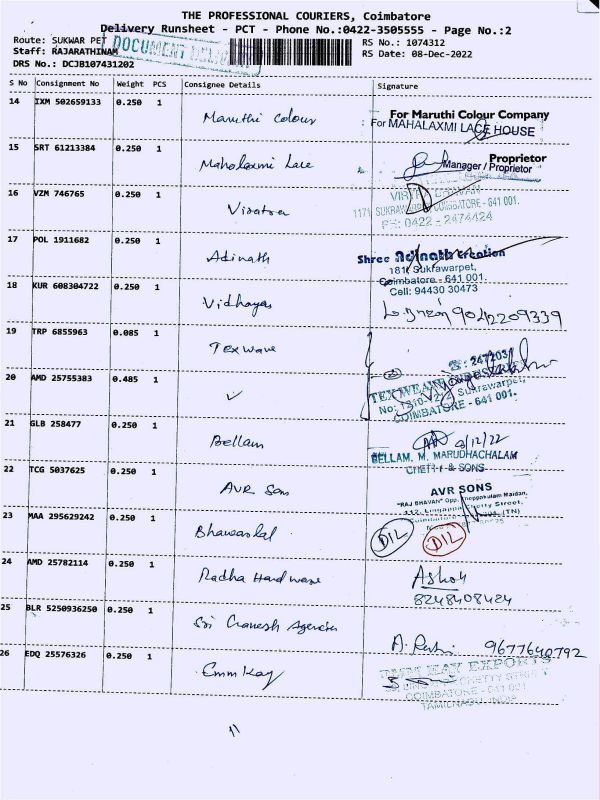 THE PROFESSIONAL COURIERS, Coimbatore
Delivery Runsheet - PCT - Phone No.:0422-3505555 - Page No.:2
Route: SUKWAR PET
DOCUMENT
RS No.: 1074312
Staff: RAJARATHINAM
RS Date: 08-Dec-2022
DRS No.: DCJB107431202
S No Consignment No Weight PCS Consignee Details Signature
14 IXM 502659133 0.250 1 Maruthi Colour
For Maruthi Colour Company
For MAHALAXMI LACE HOUSE
15 SRT 61213384 0.250 1 Mahalaxmi Lace
Proprietor
Manager / Proprietor
16 VZM 746765 0.250 1
1171, SUKRAWARPET, COIMBATORE - 641 001.
PH: 0422 - 2474424
17 POL 1911682 0.250 1 Adinath
Shree Adinath Creation
181, Sukrawarpet,
Coimbatore - 641 001.
Cell: 94430 30473
18 KUR 608304722 0.250 1 Vidhayas
9042209339
19 TRP 6855963 0.085 1 Texwave
☎: 2472031
20 AMD 25755383 0.485 1 ✓
Sukrawarpet,
COIMBATORE - 641 001.
21 GLB 258477 0.250 1 Bellam
9/12/22
BELLAM. M. MARUDHACHALAM
CHETTI & SONS
22 TCG 5037625 0.250 1 AVR Sons
AVR SONS
"RAJ BHAVAN" Opp. Theppakulam Maidan,
112, Lingappa Chetty Street,
23 MAA 295629242 0.250 1 Bhawarlal
DIL DIL
24 AMD 25782114 0.250 1 Radha Hardware
Ashok
8248408424
25 BLR 5250936250 0.250 1 Sri Ganesh Agencies
9677640792
26 EDQ 25576326 0.250 1 Emm Kay
EMM KAY EXPORTS
CHETTY STREET
COIMBATORE - 641 001
TAMILNADU, INDIA
11